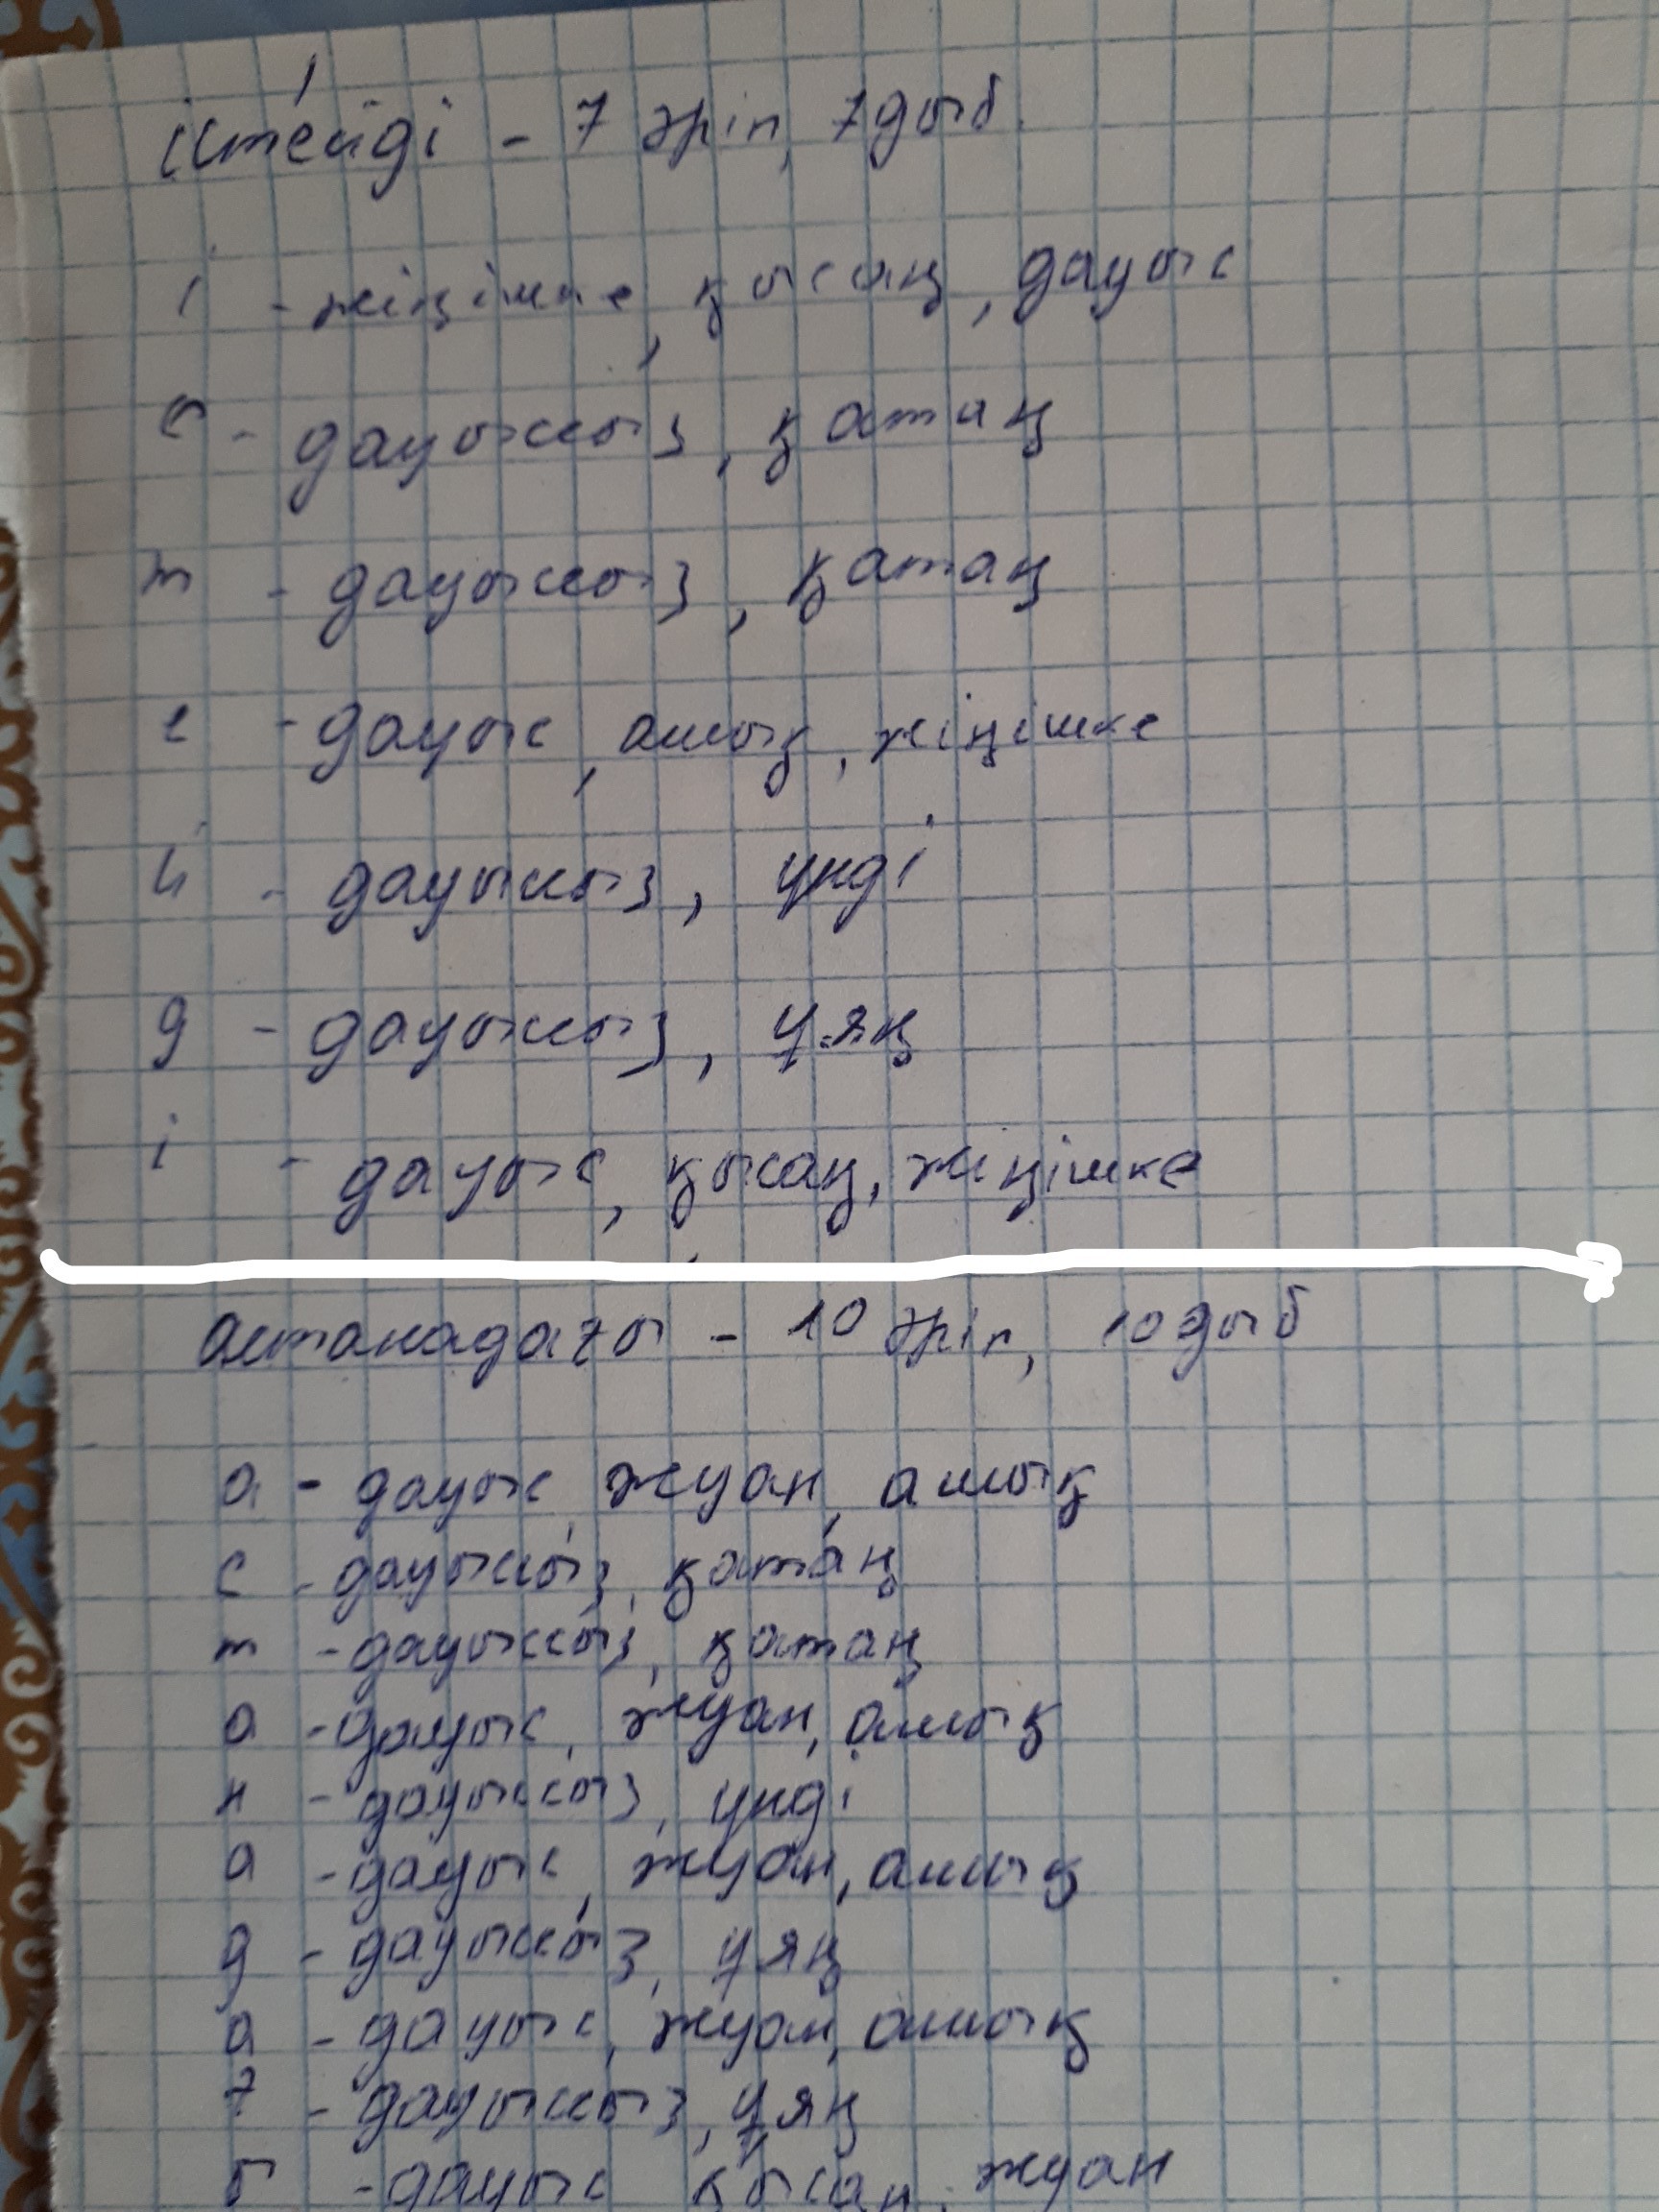 істейді - 7 әріп, 7 дыб.
і - жіңішке, қысаң, дауыс
с - дауыссыз, қатаң
т - дауыссыз, қатаң
е - дауыс, ашық, жіңішке
й - дауыссыз, үнді
д - дауыссыз, ұяң
і - дауыс, қысаң, жіңішке
астанадағы - 10 әріп, 10 дыб
а - дауыс, жуан, ашық
с - дауыссыз, қатаң
т - дауыссыз, қатаң
а - дауыс, жуан, ашық
н - дауыссыз, үнді
а - дауыс, жуан, ашық
д - дауыссыз, ұяң
а - дауыс, жуан, ашық
ғ - дауыссыз, ұяң
ы - дауыс қысаң, жуан